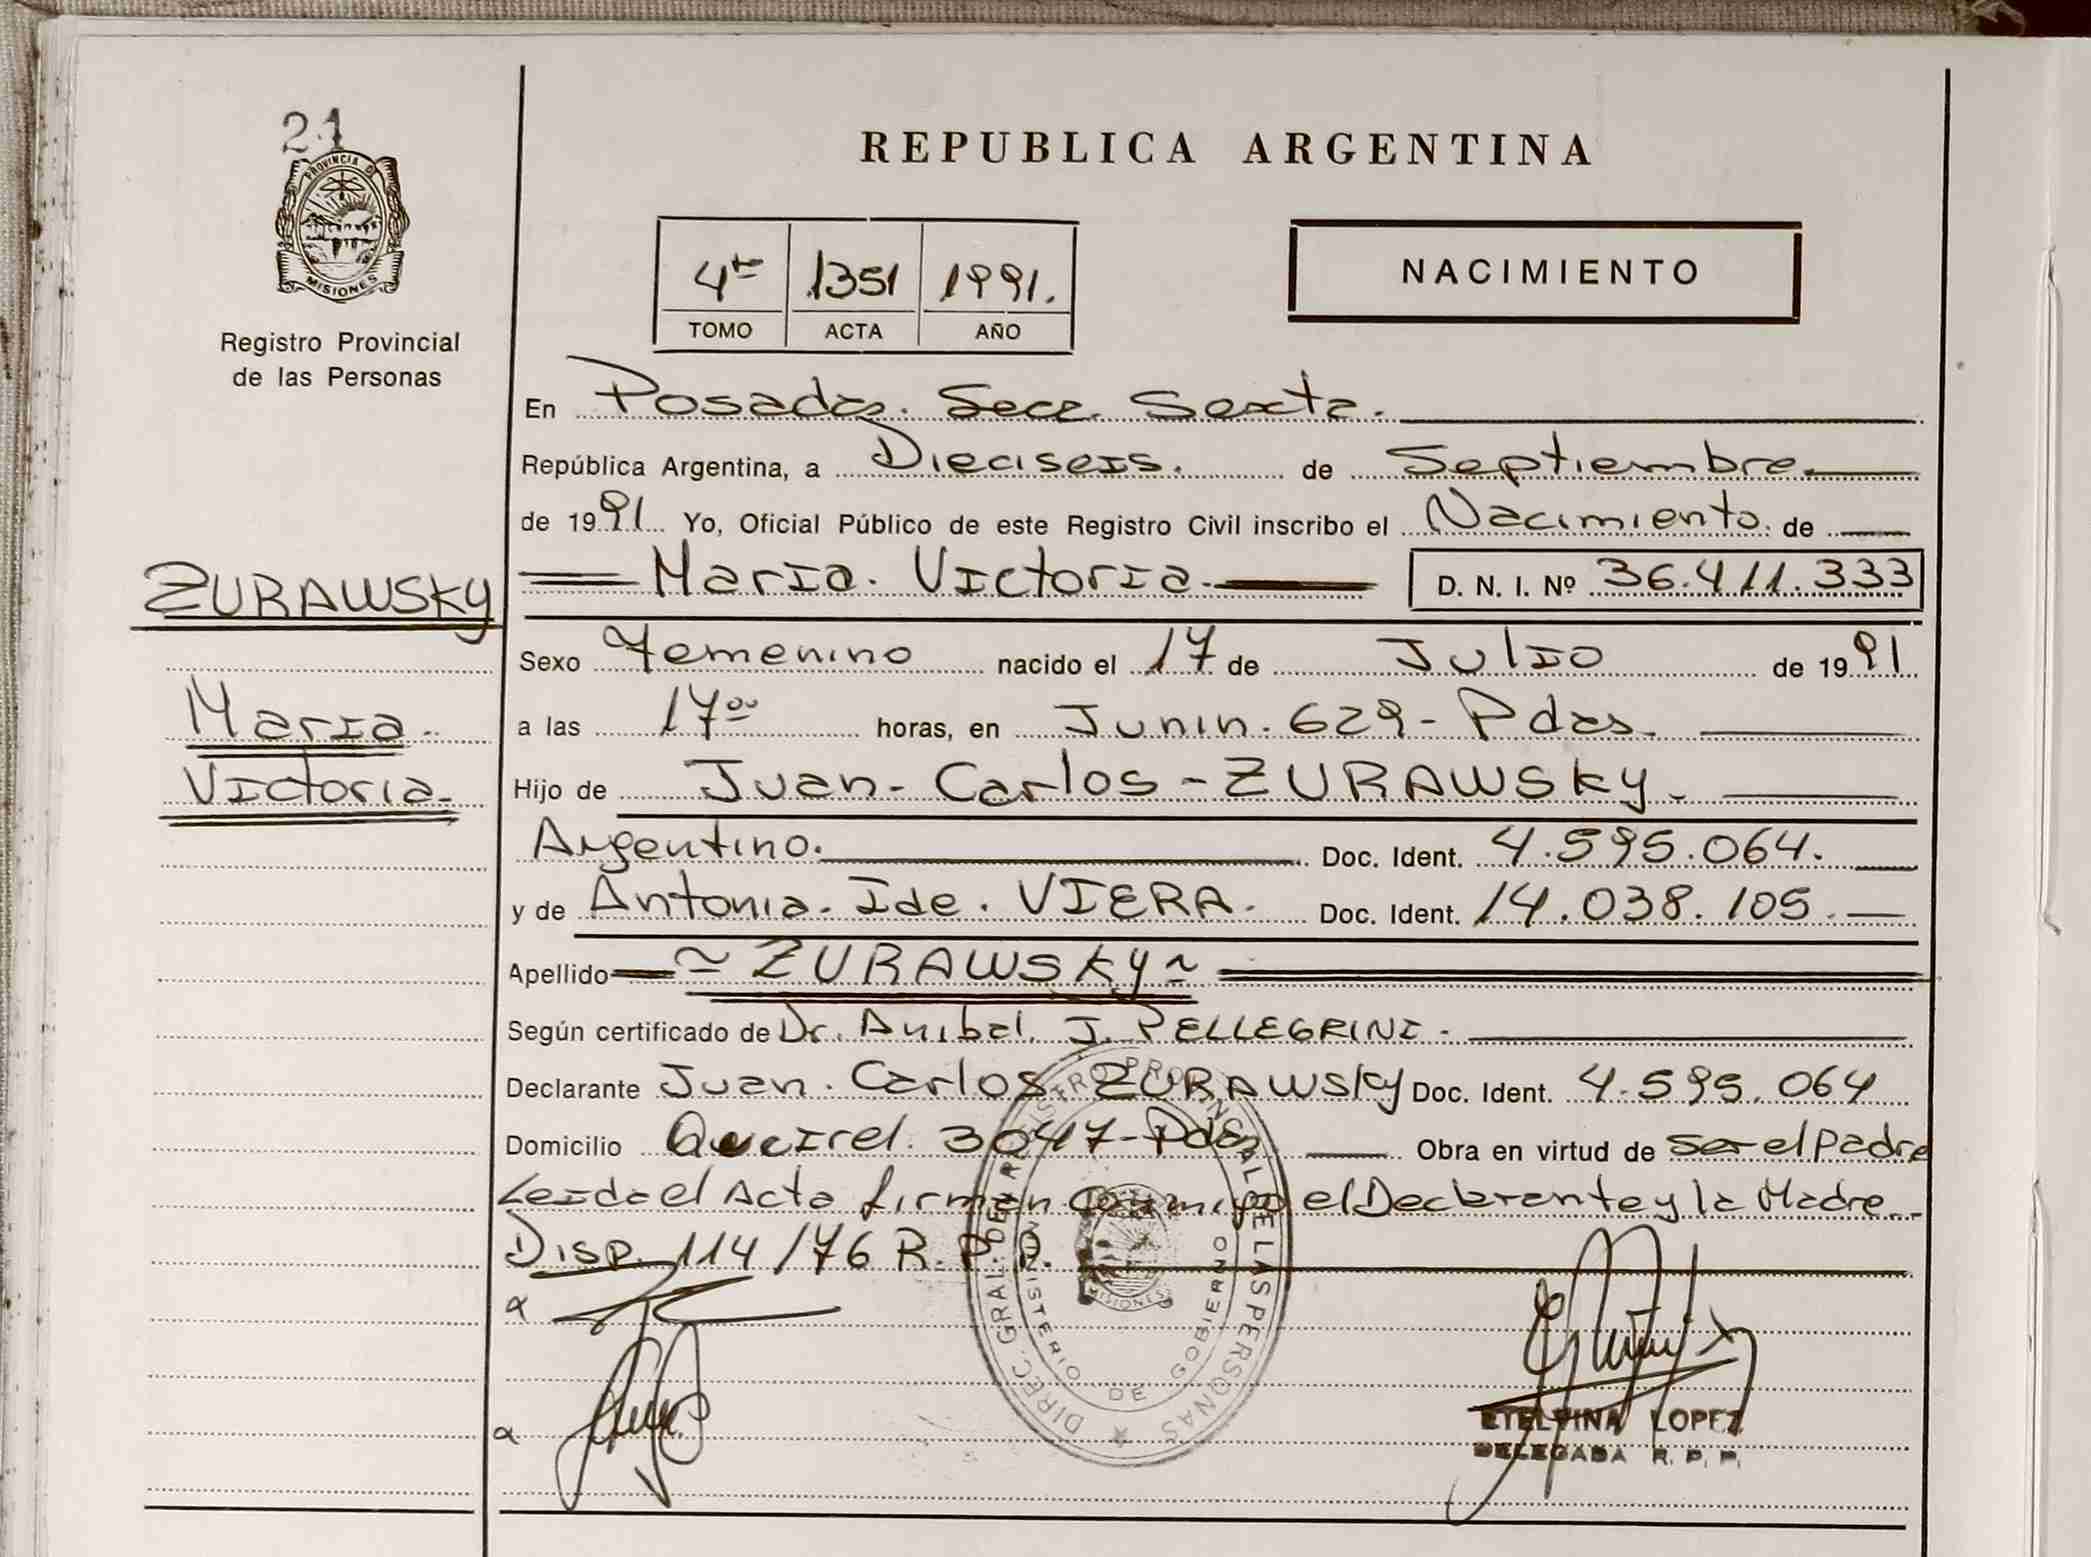 21
PROVINCIA D
MISIONES
Registro Provincial
de las Personas
REPUBLICA ARGENTINA
4to 1351 1991.
TOMO ACTA AÑO
NACIMIENTO
En Posadas. Secc. Sexta.
República Argentina, a Dieciseis. de Septiembre.
de 1991 Yo, Oficial Público de este Registro Civil inscribo el Nacimiento. de
Maria. Victoria. D. N. I. Nº 36.411.333
ZURAWSKY
Maria.
Victoria.
Sexo Femenino nacido el 17 de Julio de 1991
a las 17 00 horas, en Junin. 629 - Pdas.
Hijo de Juan - Carlos - ZURAWSKY.
Argentino. Doc. Ident. 4.595.064.
y de Antonia. Ide. VIERA. Doc. Ident. 14.038.105.
Apellido ~ ZURAWSKY ~
Según certificado de Dr. Anibal. J. PELLEGRINI.
Declarante Juan. Carlos ZURAWSKY Doc. Ident. 4.595.064
Domicilio Queirel. 3047 - Pdas Obra en virtud de ser el Padre
Leida el Acta firman conmigo el Declarante y la Madre.
Disp. 114/76 R. P. P.
DIREC. GRAL. DEL REGISTRO PROVINCIAL DE LAS PERSONAS
MINISTERIO DE GOBIERNO
MISIONES
ETELVINA LOPEZ
DELEGADA R. P. P.